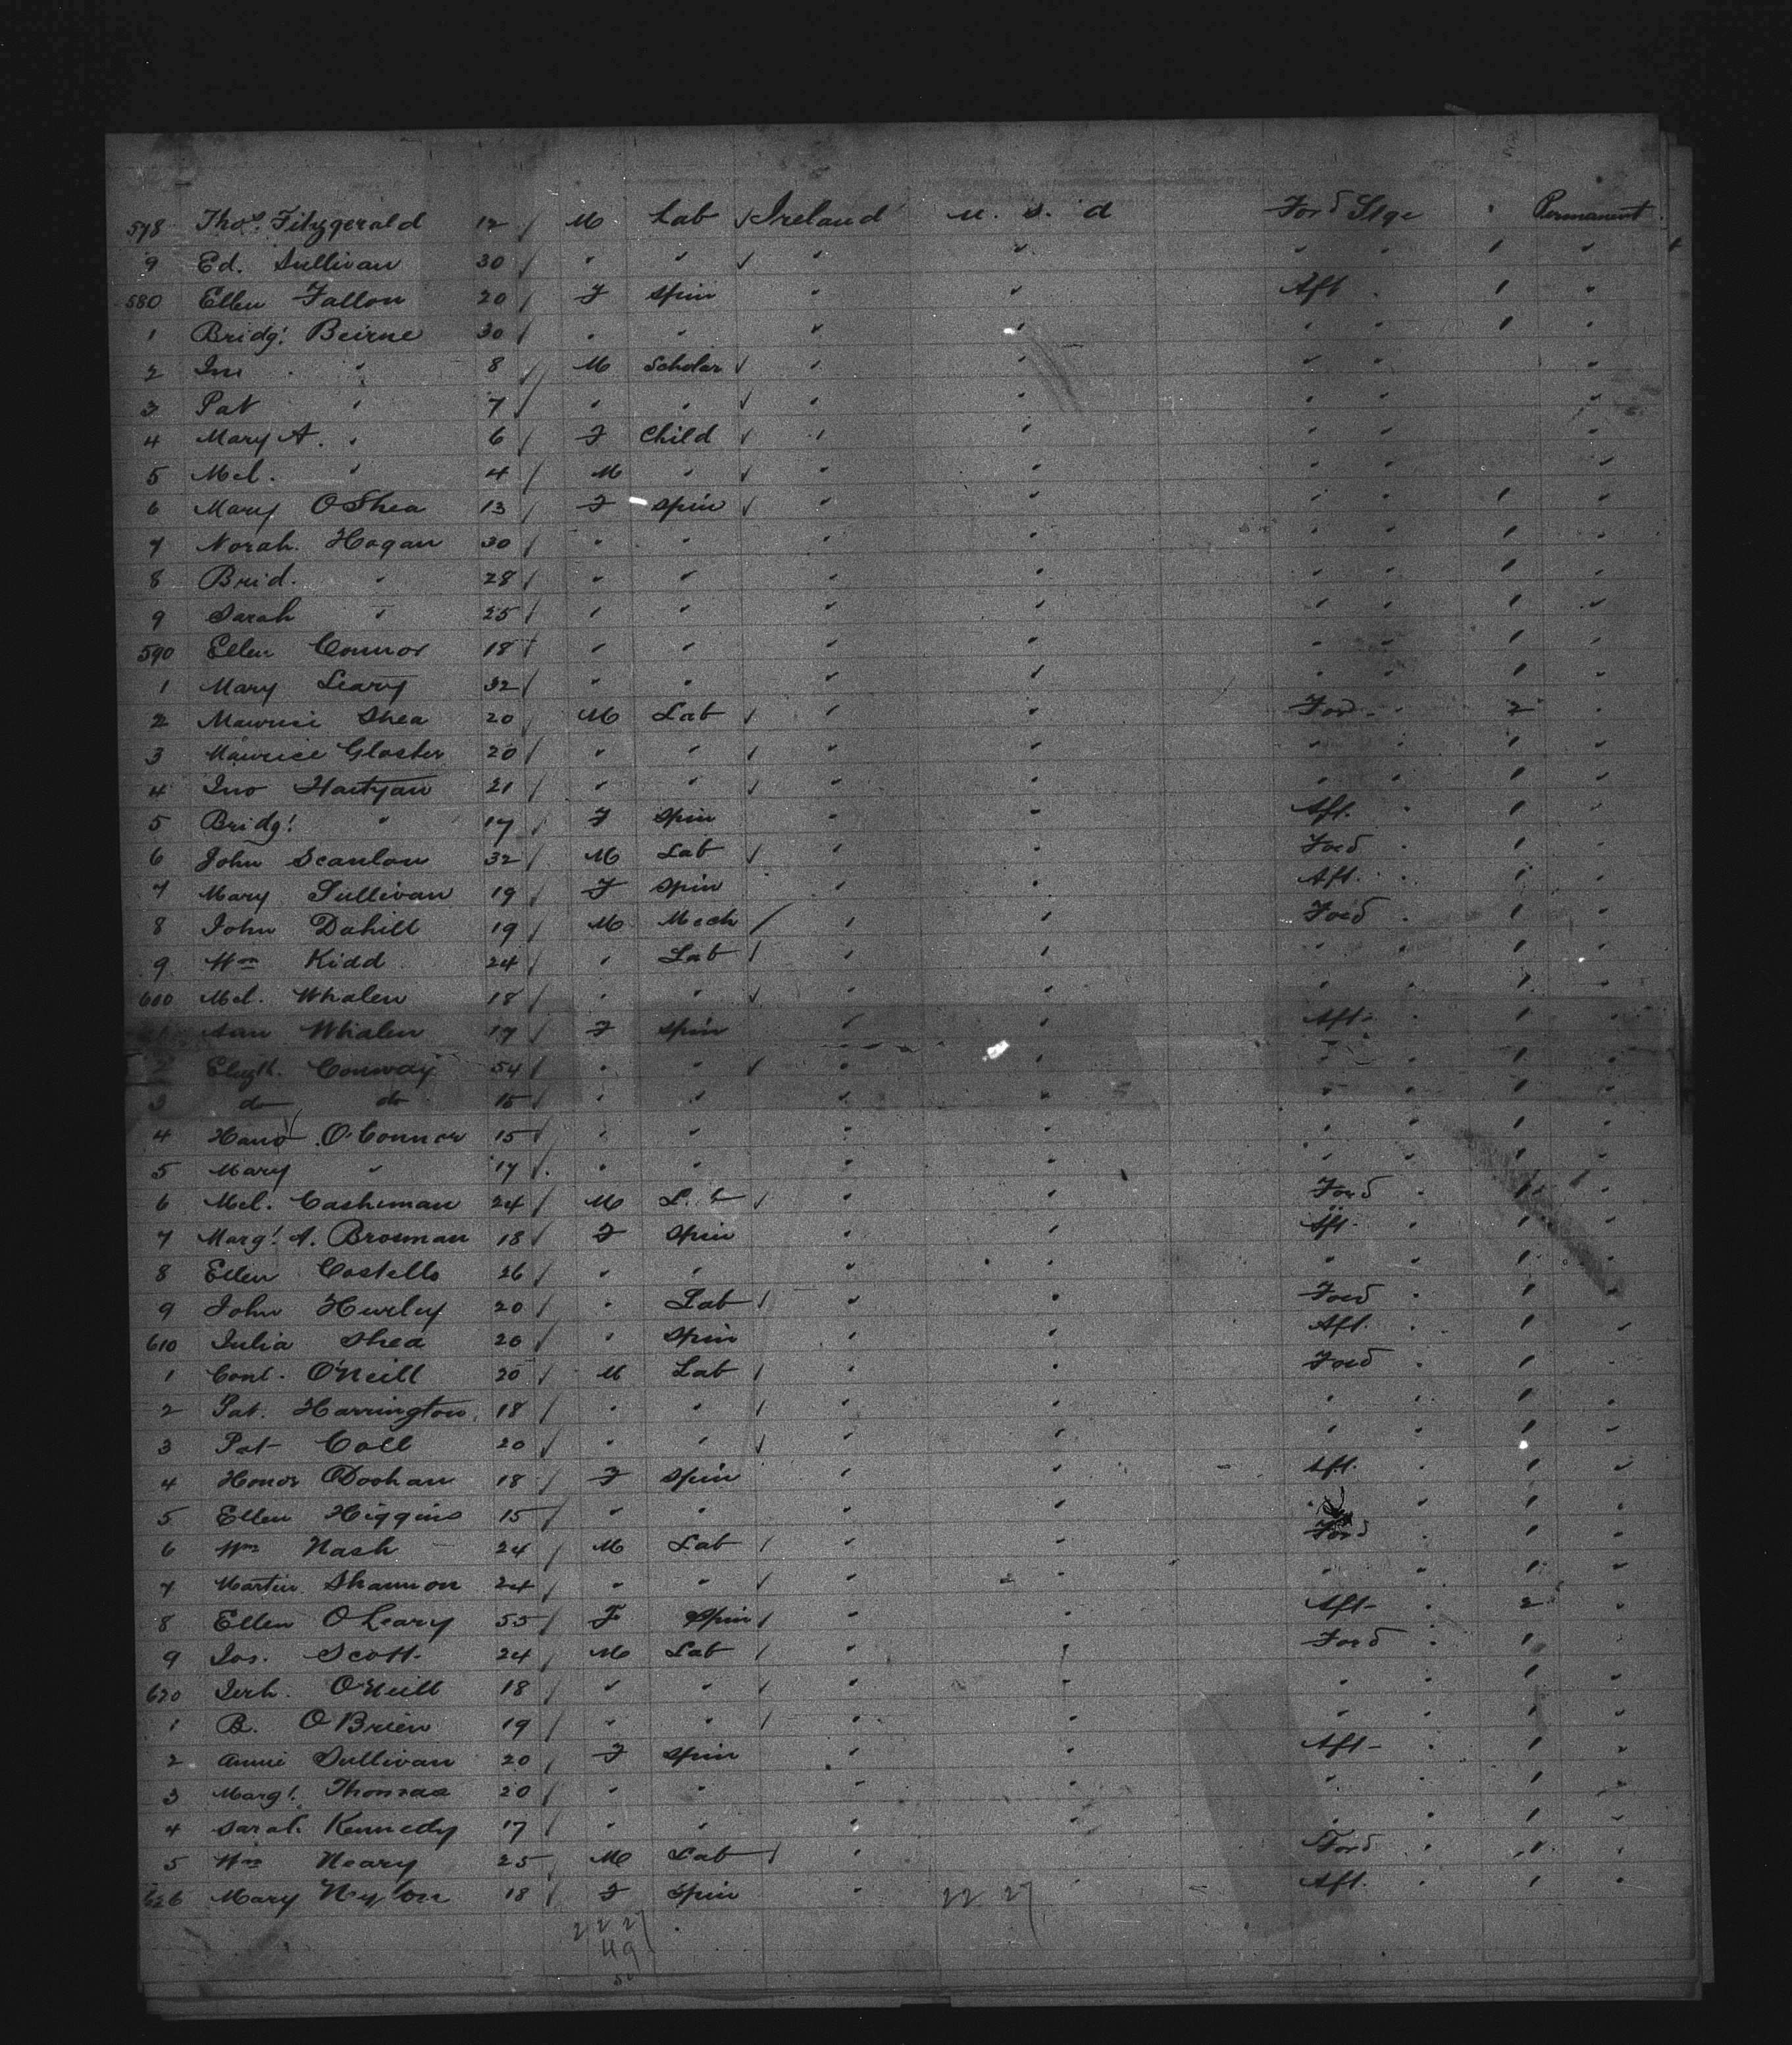 578 Thos. Fitzgerald 12 / M Lab √ Ireland U. S. A Ford Stge " Permanent
9 Ed. Sullivan 30 / " " √ " " " " 1 "
580 Ellen Fallon 20 / F Spin " " Aft " 1 "
1 Bridgt. Beirne 30 / " " " " " " 1 "
2 Jno " 8 / M Scholar √ " " " " "
3 Pat " 7 / " " √ " " " " "
4 Mary A. " 6 / F Child √ " " " " "
5 Mcl. " 4 / M " √ " " " " "
6 Mary OShea 13 / F Spin √ " " " " 1 "
7 Norah Hogan 30 / " " " " " " 1 "
8 Brid. " 28 / " " " " " " 1 "
9 Sarah " 25 / " " " " " " 1 "
590 Ellen Connor 18 / " " " " " " 1 "
1 Mary Leary 32 / " " " " " " 1 "
2 Maurice Shea 20 / M Lab √ " " Ford " 2 "
3 Maurice Gloster 20 / " " √ " " " " 1 "
4 Jno Hartyan 21 / " " √ " " " " 1 "
5 Bridgt. " 17 / F Spin " " Aft. " 1 "
6 John Scanlon 32 / M Lab √ " " Ford " 1 "
7 Mary Sullivan 19 / F Spin " " Aft. " 1 "
8 John Dahill 19 / M Mech / " " Ford " 1 "
9 Wm Kidd 24 / " Lab / " " " " 1 "
600 Mcl. Whalen 18 / " " √ " " " " 1 "
1 Ann Whalen 17 / F Spin " " Aft " 1 "
2 Elizth. Conway 54 / " " √ " " " " 1 "
3 do do 15 / " " " " " " 1 "
4 O'Connor 15 / " " " " " " 1 "
5 Mary " 17 / " " " " " " 1 "
6 Mcl. Cashman 24 / M Lab √ " " Ford " 1 "
7 Margt. A. Brosnan 18 / F Spin " " Aft " 1 "
8 Ellen Costello 26 / " " " " " " 1 "
9 John Hurley 20 / " Lab / " " Ford " 1 "
610 Julia Shea 20 / " Spin " " Aft. " 1 "
1 Conl. O'Neill 20 / M Lab / " " Ford " 1 "
2 Pat. Harrington 18 / " " / " " " " 1 "
3 Pat Coll 20 / " " √ " " " " 1 "
4 Honor Doohan 18 / F Spin " " Aft. " 1 "
5 Ellen Higgins 15 / " " " " " " 1 "
6 Wm Nash 24 / M Lab / " " Ford " 1 "
7 Martin Shannon 24 / " " √ " " " " 1 "
8 Ellen OLeary 55 / F Spin / " " Aft " 2 "
9 Jos. Scott 24 / M Lab / " " Ford " 1 "
620 Jerh. ONeill 18 / " " √ " " " " 1 "
1 B. OBrien 19 / " " / " " " " 1 "
2 Annie Sullivan 20 / F Spin " " Aft " 1 "
3 Margt. Thomas 20 / " " " " " " 1 "
4 Sarah Kennedy 17 / " " " " " " 1 "
5 Wm Neary 25 / M Lab / " " Ford " 1 "
626 Mary Nylon 18 / F Spin " " Aft. " 1 "
22 27
22 27
49